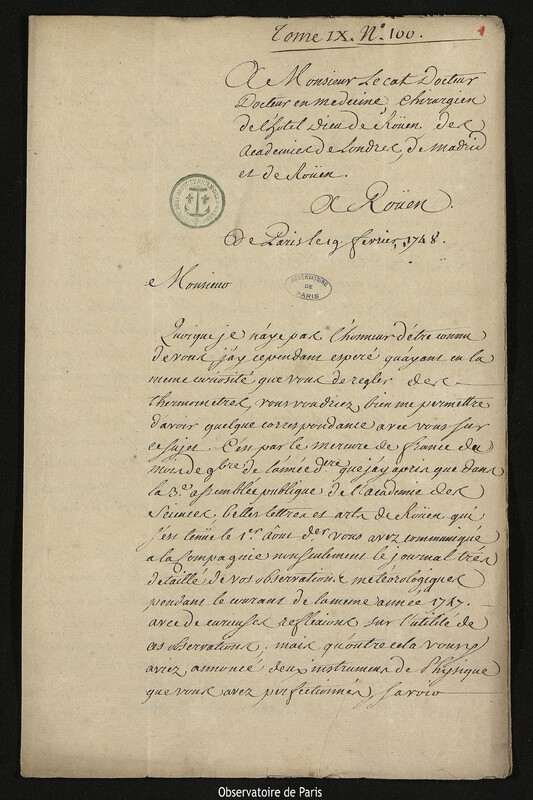 Tome IX. N.° 100.
1
A Monsieur Le cat Docteur
Docteur en medecine, chirurgien
de l'hotel Dieu de Roüen, des
Academies de Londres, de Madrid
et de Roüen.
A Roüen.
De Paris le 19 fevrier, 1748.
Monsieur
OBSERVATOIRE
DE
PARIS
Quoique je n'aye pas l'honneur d'être connu
de vous, j'ay cependant esperé qu'ayant eu la
meme curiosité que vous de regler des
thermometres, vous voudriez bien me permettre
d'avoir quelque correspondance avec vous sur
ce sujet. C'est par le mercure de france du
mois de 9bre de l'année dere que j'ay apris que dans
la 3e assemblée publique de l'academie des
Sciences, belles lettres et arts de Roüen qui
s'est tenüe le 1.er Août der vous avez communiqué
a la Compagnie non seulement le journal très
detaillé de vos observations météorologiques
pendant le courant de la meme année 1747.
avec de curieuses reflexions sur l'utilité de
ces observations, mais qu'outre cela vous y
aviez annoncé deux instrumens de Physique
que vous avez perfectionnés savoir
Observatoire de Paris